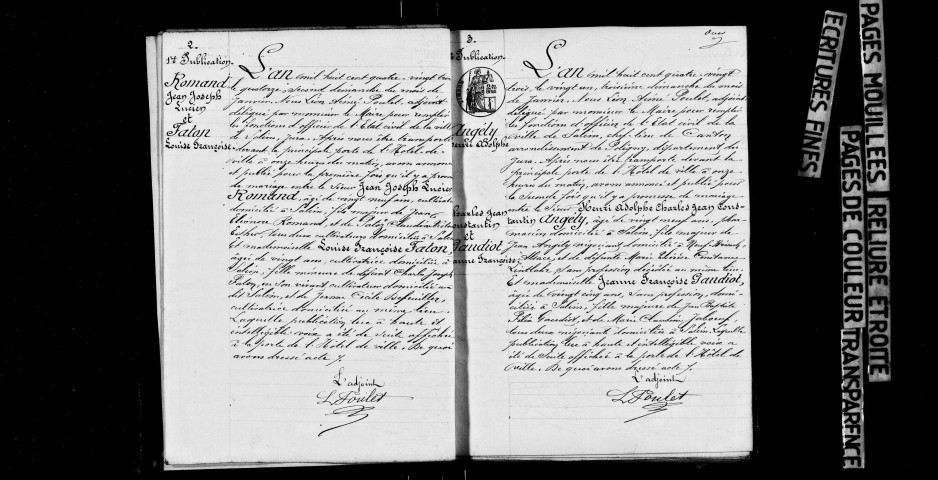 2.
1re Publication.
Romand
Jean Joseph
Lucien
et
Faton
Louise Françoise.
L'an mil huit cent quatre-vingt trois
le quatorze, second dimanche du mois de
Janvier. Nous Léon Aimé Poulet, adjoint
délégué par monsieur le Maire pour remplir
les fonctions d'officier de l'État civil de la ville
Salins, Jura. Après nous être transporté
devant la principale porte de l'Hôtel de
ville à onze heures du matin, avons annoncé
et publié pour la première fois qu'il y a promesse
de mariage entre le Sieur Jean Joseph Lucien
Romand, âgé de vingt neuf ans, cultivateur
domicilié à Salins, fils majeur de Jean
Romand, et de
tous deux cultivateurs domiciliés à Salins
Et mademoiselle Louise Françoise Faton,
âgée de vingt ans, cultivatrice domiciliée à
Salins, fille mineure de défunt Charles Joseph
Faton, en son vivant cultivateur domicilié au
dit Salins, et de Jeanne
cultivatrice domiciliée au même lieu.
Laquelle publication lue à haute et
intelligible voix a été de suite affichée
à la porte de l'Hôtel de ville. De quoi
avons dressé acte.
L'adjoint
L. Poulet
3.
Publication.
Angély
Henri Adolphe
Charles Jean
Constantin
et
Gaudiot
Jeanne Françoise.
L'an mil huit cent quatre-vingt
trois, le vingt un, troisième dimanche du mois
de Janvier. Nous Léon Aimé Poulet, adjoint
délégué par monsieur le Maire pour remplir
les fonctions d'officier de l'État civil de la
ville de Salins, chef-lieu de Canton
arrondissement de Poligny, département du
Jura. Après nous être transporté devant la
principale porte de l'Hôtel de ville à onze
heures du matin, avons annoncé et publié pour
la seconde fois qu'il y a promesse de mariage
entre le Sieur Henri Adolphe Charles Jean Cons-
tantin Angély, âgé de vingt neuf ans, phar-
macien domicilié à Salins, fils majeur de
Jean Angély négociant domicilié à
et de défunte Marie Constance
sans profession décédée au même lieu.
Et mademoiselle Jeanne Françoise Gaudiot,
âgée de vingt cinq ans, sans profession, domi-
ciliée à Salins, fille majeure de Jean Baptiste
Gaudiot, et de Marie Claudine
tous deux négociants domiciliés à Salins. Laquelle
publication lue à haute et intelligible voix a
été de suite affichée à la porte de l'Hôtel de
ville. De quoi avons dressé acte.
L'adjoint
L. Poulet
PAGES MOUILLEES
ECRITURES FINES
RELIURE ETROITE
PAGES DE COULEUR
TRANSPARENCE